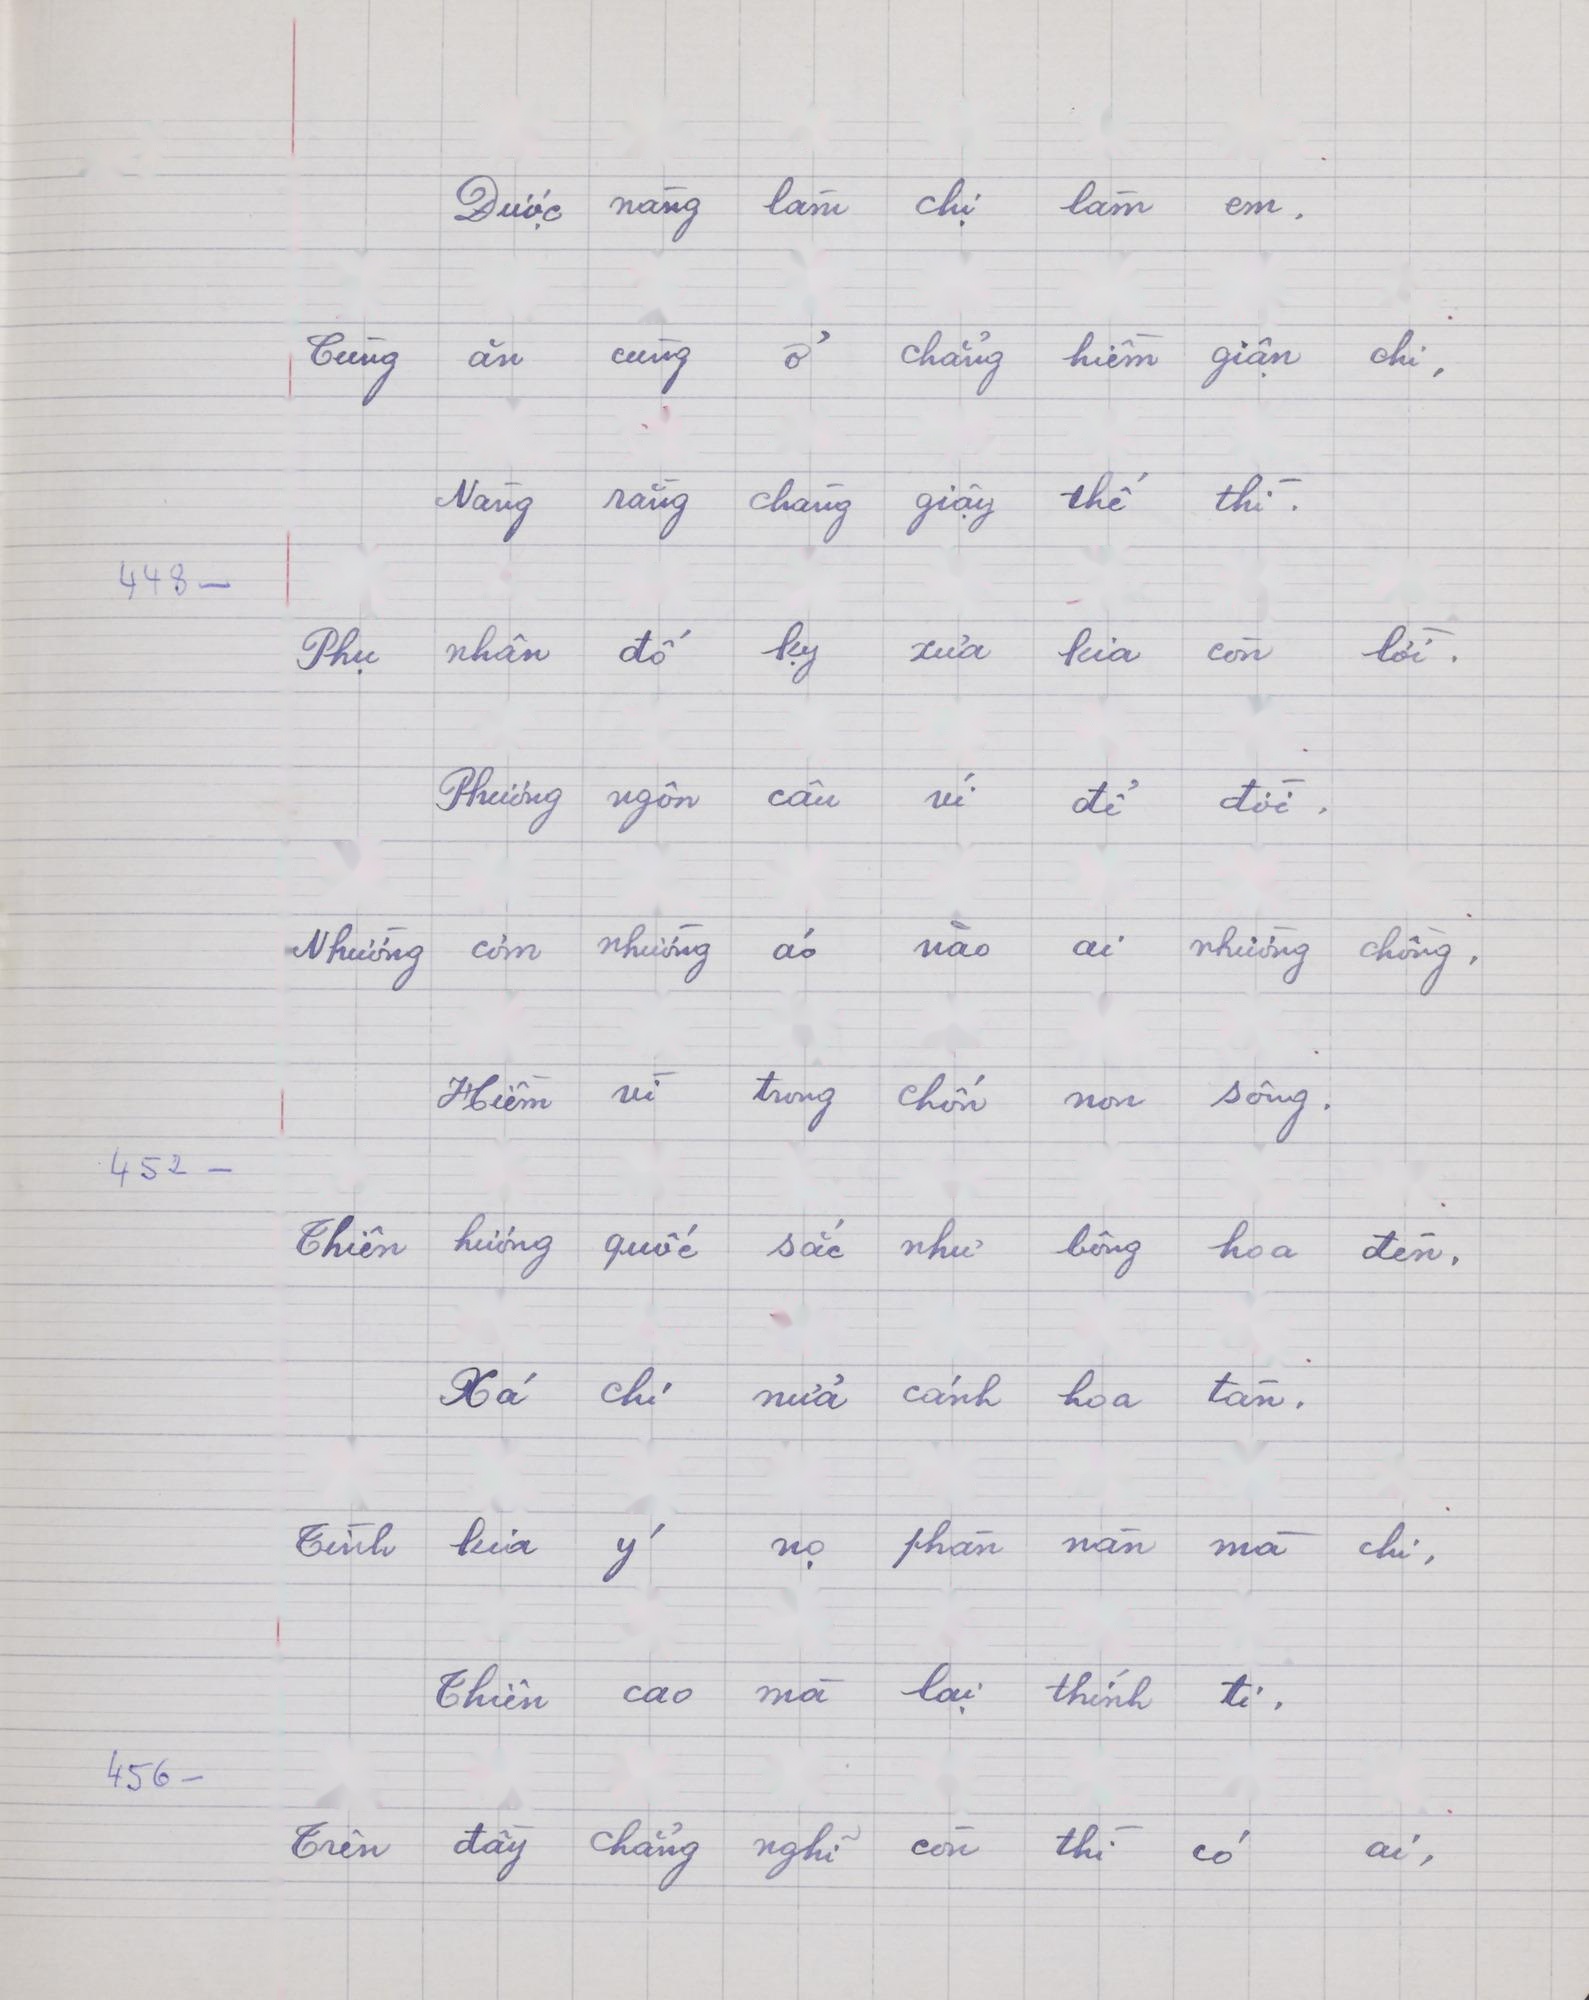 Được nàng làm chị làm em.
Cùng ăn cùng ở chẳng hiềm giận chi,
Nàng rằng chàng giậy thế thì.
448-
Phụ nhân đố kỵ xưa kia còn lời.
Phương ngôn câu ví để đời.
Nhường cơm nhường áo nào ai nhường chồng,
Hiềm vì trong chốn non sông.
452-
Thiên hương quốc sắc như bông hoa đèn,
Xá chi nửa cánh hoa tàn.
Tình kia ý nọ phàn nàn mà chi,
Thiên cao mà lại thính ti.
456-
Trên đầy chẳng nghĩ còn thì có ai,